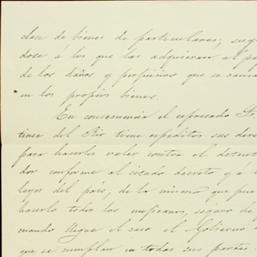 dose de bienes de particulares; suje
dose á los que las adquieran al pa
de los daños y perjuicios que se causa
en los propios bienes.
En consecuencia el expresado
tinez del Rio tiene expeditos sus dere
para hacerlos valer contra el detent
dor conforme al citado decreto y a l
leyes del pais, de la misma que pue
hacerlo todos los mexicanos, seguro de
cuando llegue el caso el Gobierno
que se cumplan en todas sus partes